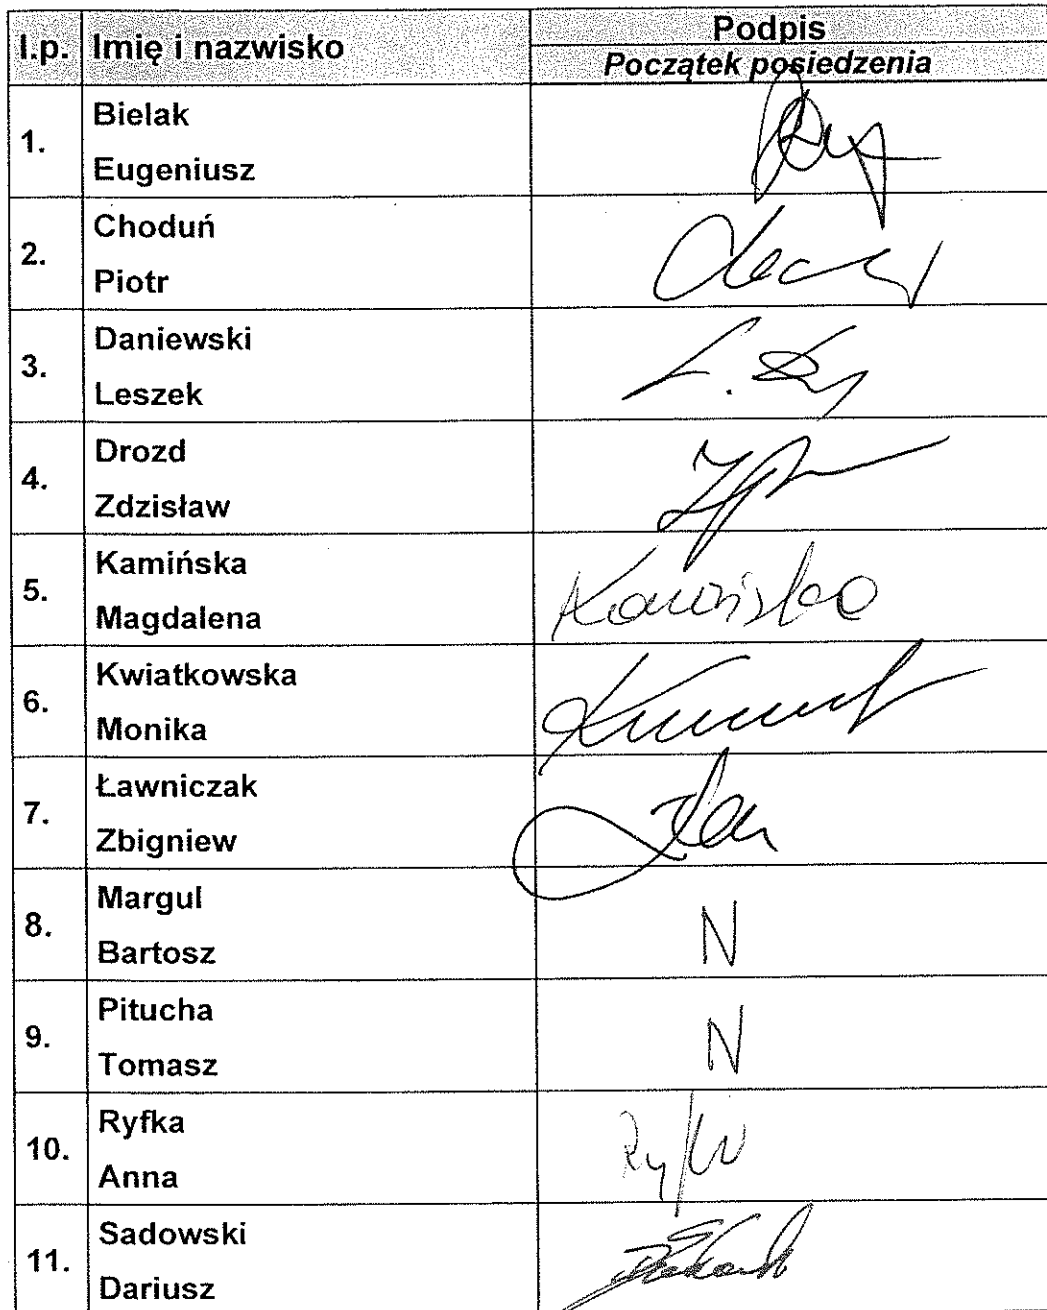 l.p. Imię i nazwisko Podpis
Początek posiedzenia
1. Bielak
Eugeniusz
2. Choduń
Piotr
3. Daniewski
Leszek
4. Drozd
Zdzisław
5. Kamińska
Magdalena
6. Kwiatkowska
Monika
7. Ławniczak
Zbigniew
8. Margul
Bartosz
N
9. Pitucha
Tomasz
N
10. Ryfka
Anna
11. Sadowski
Dariusz